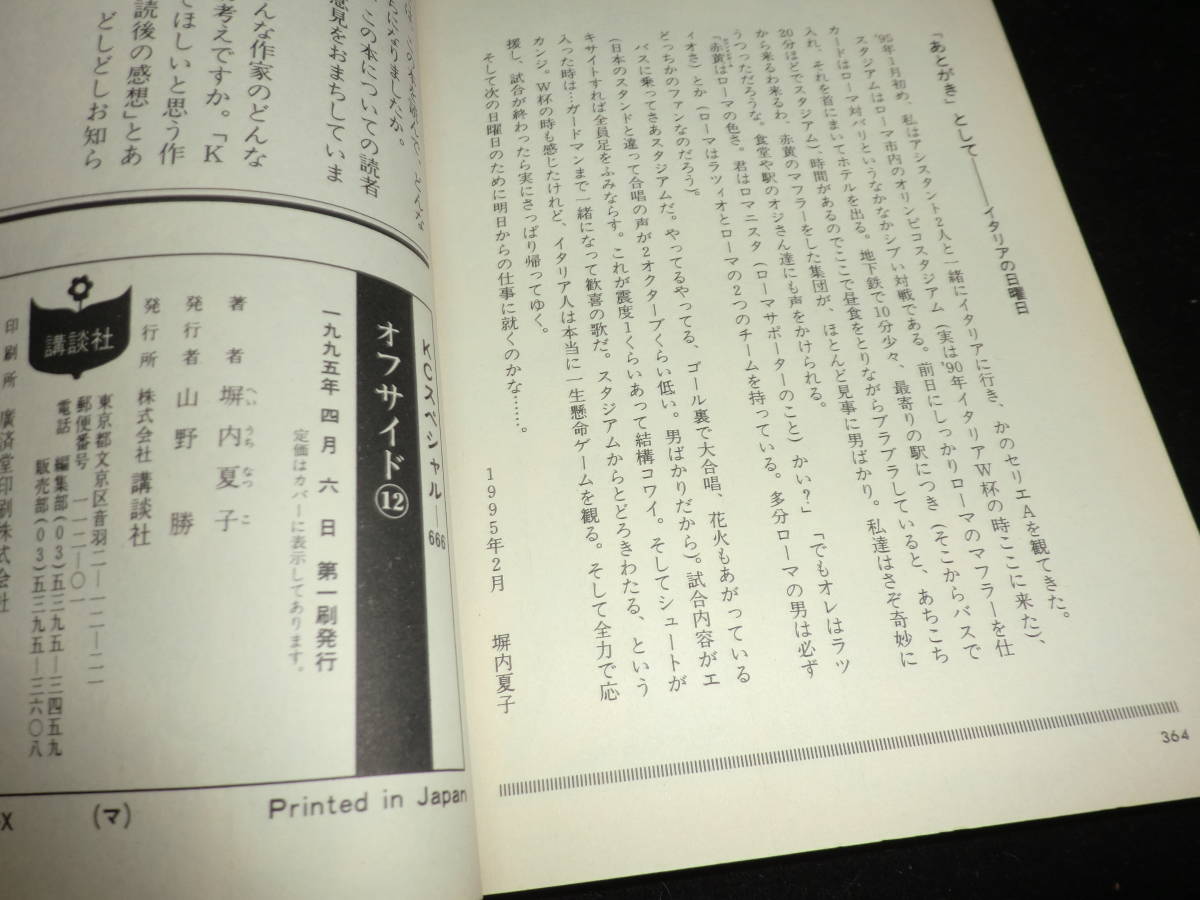 「あとがき」として――イタリアの日曜日
'95年1月初め、私はアシスタント2人と一緒にイタリアに行き、かのセリエAを観てきた。
スタジアムはローマ市内のオリンピコスタジアム（実は'90年イタリアW杯の時ここに来た）、
カードはローマ対バリというなかなかシブい対戦である。前日にしっかりローマのマフラーを仕
入れ、それを首にまいてホテルを出る。地下鉄で10分少々、最寄りの駅につき（そこからバスで
20分ほどでスタジアム）、時間があるのでここで昼食をとりながらブラブラしていると、あちこち
から来るわ来るわ、赤黄のマフラーをした集団が、ほとんど見事に男ばかり。私達はさぞ奇妙に
うつっただろうな。食堂や駅のオジさん達にも声をかけられる。
「赤黄はローマの色さ。君はロマニスタ（ローマサポーターのこと）かい？」「でもオレはラッ
ィオさ」とか（ローマはラツィオとローマの2つのチームを持っている。多分ローマの男は必ず
どっちかのファンなのだろう）。
バスに乗ってさあスタジアムだ。やってるやってる、ゴール裏で大合唱、花火もあがっている
（日本のスタンドと違って合唱の声が2オクターブくらい低い。男ばかりだから）。試合内容がエ
キサイトすれば全員足をふみならす。これが震度1くらいあって結構コワイ。そしてシュートが
入った時は…ガードマンまで一緒になって歓喜の歌だ。スタジアムからとどろきわたる、という
カンジ。W杯の時も感じたけれど、イタリア人は本当に一生懸命ゲームを観る。そして全力で応
援し、試合が終わったら実にさっぱり帰ってゆく。
そして次の日曜日のために明日からの仕事に就くのかな……。
1995年2月　塀内夏子
364
この本についての読者
意見をおまちしていま
んな作家のどんな
考えですか。「K
てほしいと思う作
読後の感想」とあ
どしどしお知ら
KCスペシャル―666
オフサイド⑫
一九九五年四月六日　第一刷発行
定価はカバーに表示してあります。
著者　塀内夏子
へいうちなつこ
発行者　山野勝
発行所　株式会社　講談社
東京都文京区音羽二―一二―二一
郵便番号　一一二―〇一
電話　編集部（〇三）五三九五―三四五九
販売部（〇三）五三九五―三六〇八
印刷所　廣済堂印刷株式会社
講談社
（マ）
Printed in Japan